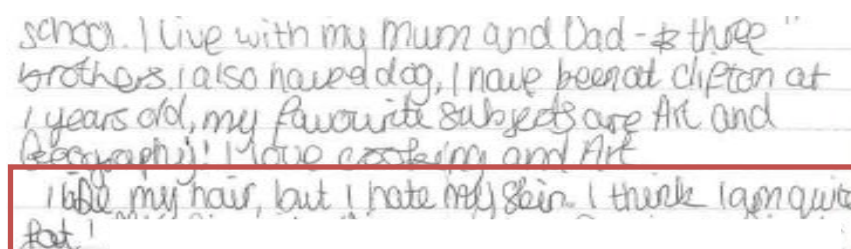 school. I live with my Mum and Dad - & three
brothers. i also have a dog, I have been at clifton at
1 years old, my favourite subjects are Art and
Geography! I love cooking and Art
I my hair, but I hate my skin. I think I am quite
fat!